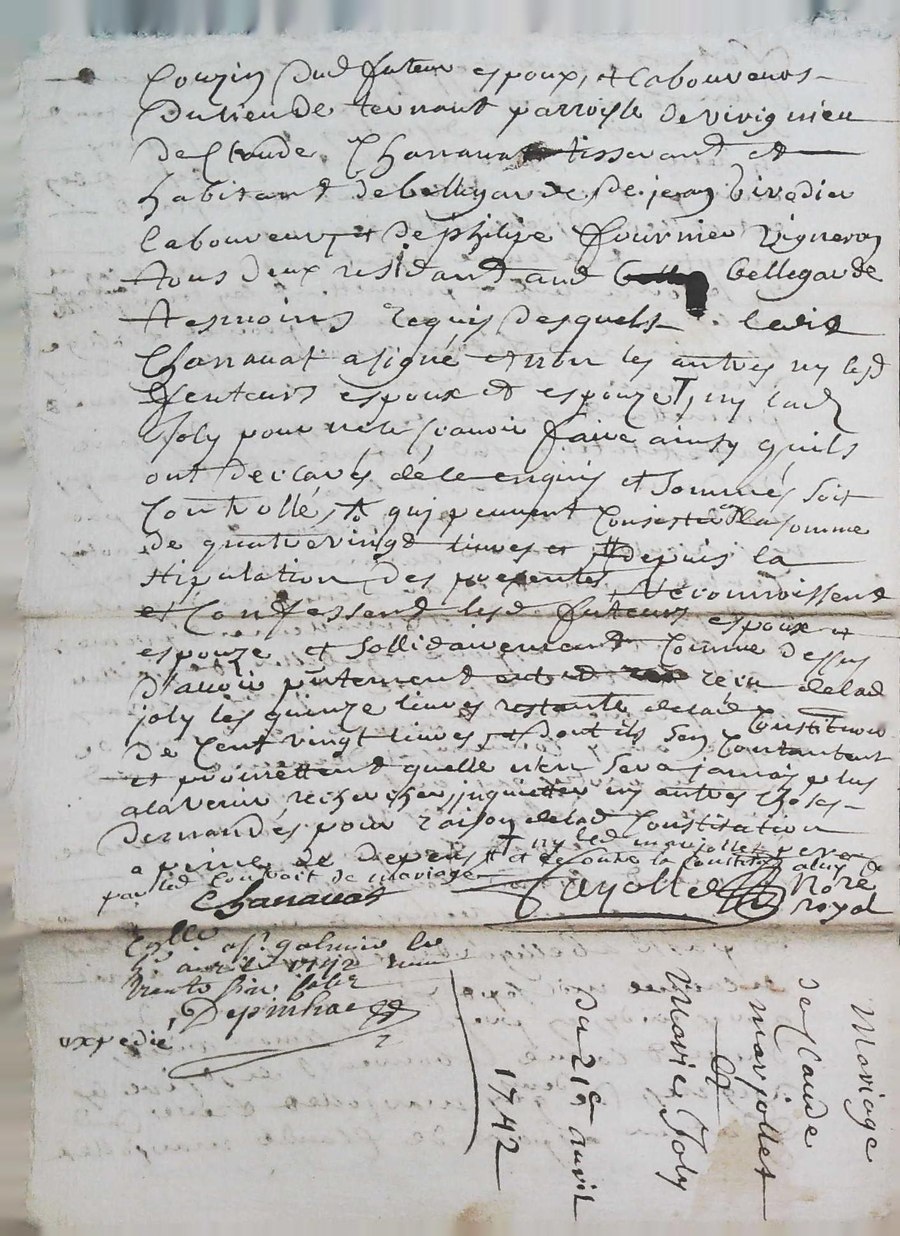 Couzin dud futeur espoux, et Laboureurs
du lieu de ternant parroisse de virignieu
de Claude Chanauat tisserand et
habitant de bellegarde de jean virodier
laboureur, et de philipe fournier vigneron
tous deux residant aud bellegarde
tesmoins requis desquels ledit
Chanauat a signé et non les autres ny lesd
futeurs espoux et espouze, ny lad
Joly pour ne le scauoir faire ainsy quils
ont declarés de le enquis et sommés soit
Controllé, qui peuuent Consister la somme
de quatre vingt liures et depuis la
stipulation des presentes, Reconnoissent
et Confessent lesd futeurs espoux et
espouze et sollidairement Comme dessus
d'auoir receu delad
joly les quinze liures restante delad Constitution
de Cent vingt liures, et dont ils sen Contantent
et promettent quelle nen sera jamais plus
alavenir rechercher, inquietter ny autres choses
demandés pour raison delad Constitution
a peine de depens † ny led marjollet pere
par led Contrait de mariage
Chanauat
Nore
royal
Collé a st galmier le
auril 1742
Depinhac
expedié
Mariage
de Claude
marjollet
&
Marie Joly
du 21e auril
1742